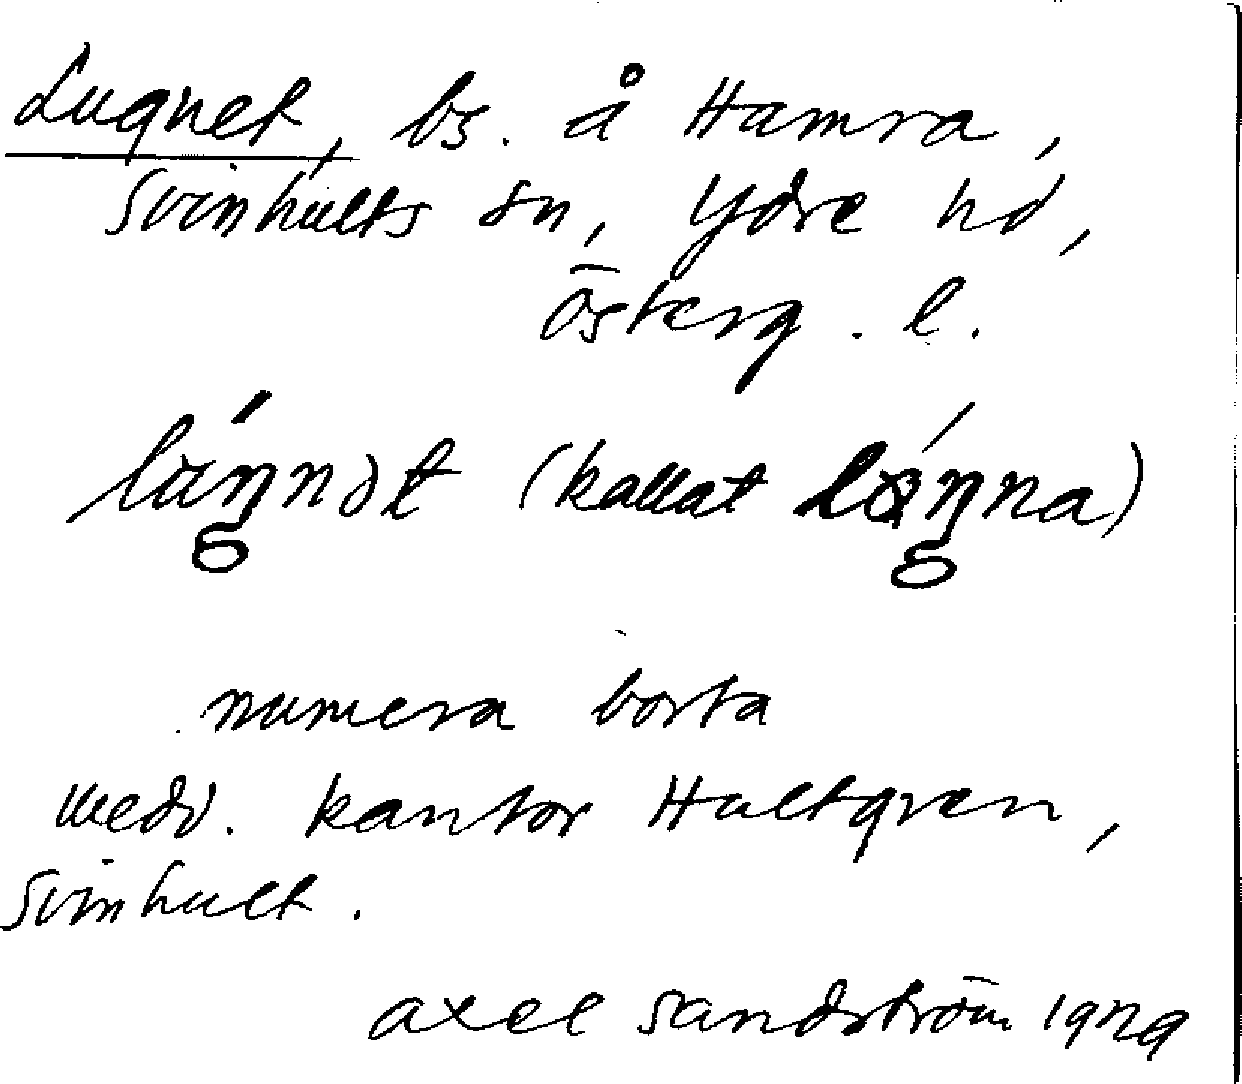 Lugnet, bs. å Hamra,
Svinhults sn, Ydre hd,
Österg. l.
(kallat
numera borta
Medd. kantor Hultgren,
Svinhult.
Axel Sandström 1929